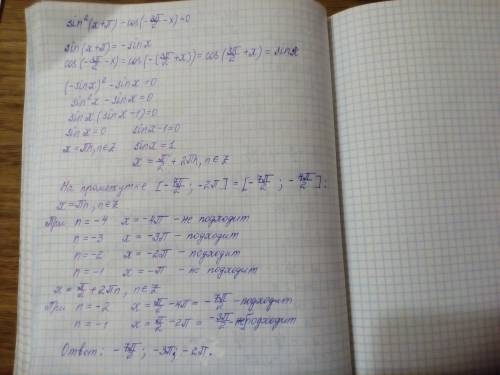 sin²(x+π) - cos(-3π/2 - x)=0
sin(x+π) = -sinx
cos(-3π/2 - x) = cos(-(3π/2 + x)) = cos(3π/2 + x) = sinx
(-sinx)² - sinx = 0
sin²x - sinx = 0
sinx (sinx - 1) = 0
sinx = 0 sinx - 1 = 0
x = πn, n∈Z sinx = 1
x = π/2 + 2πn, n∈Z
На промежутке [-7π/2 ; -2π] = [-7π/2 ; -4π/2]:
x = πn, n∈Z
При n = -4 x = -4π - не подходит
n = -3 x = -3π - подходит
n = -2 x = -2π - подходит
n = -1 x = -π - не подходит
x = π/2 + 2πn, n∈Z
При n = -2 x = π/2 - 4π = -7π/2 - подходит
n = -1 x = π/2 - 2π = -3π/2 - не подходит
Ответ: -7π/2 ; -3π; -2π.